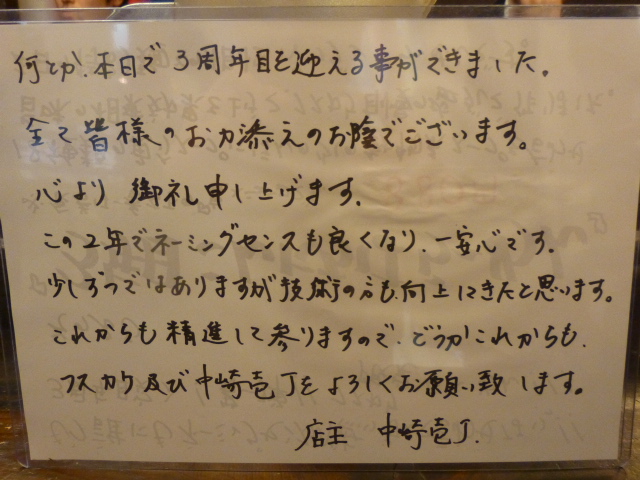 何とか、本日で3周年目を迎える事ができました。
全て皆様のお力添えのお陰でございます。
心より御礼申し上げます。
この2年でネーミングセンスも良くなり、一安心です。
少しずつではありますが技術の方も向上してきたと思います。
これからも精進して参りますので、どうかこれからも、
フスカケ及び中崎壱丁をよろしくお願い致します。
店主 中崎壱丁.